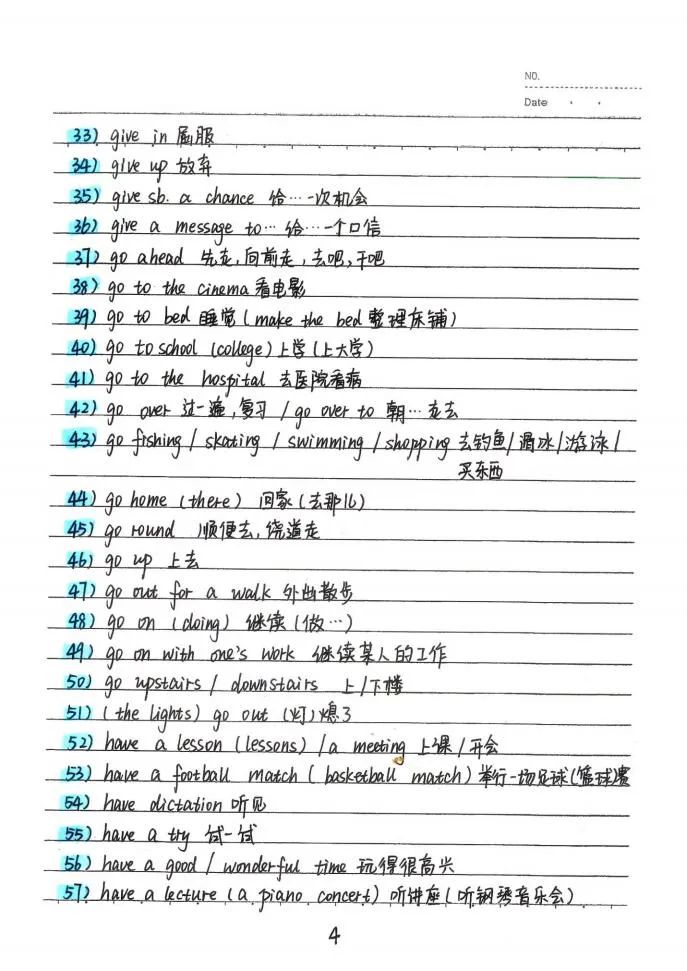 NO.
Date
33) give in 屈服
34) give up 放弃
35) give sb. a chance 给…一次机会
36) give a message to… 给…一个口信
37) go ahead 先走,向前走,去吧,干吧
38) go to the cinema 看电影
39) go to bed 睡觉(make the bed 整理床铺)
40) go to school (college) 上学(上大学)
41) go to the hospital 去医院看病
42) go over 过一遍,复习 / go over to 朝…走去
43) go fishing / skating / swimming / shopping 去钓鱼/溜冰/游泳/
买东西
44) go home (there) 回家(去那儿)
45) go round 顺便去,绕道走
46) go up 上去
47) go out for a walk 外出散步
48) go on (doing) 继续(做…)
49) go on with one's work 继续某人的工作
50) go upstairs / downstairs 上/下楼
51) (the lights) go out (灯)熄了
52) have a lesson (lessons) / a meeting 上课/开会
53) have a football match (basketball match) 举行一场足球(篮球)赛
54) have dictation 听见
55) have a try 试一试
56) have a good / wonderful time 玩得很高兴
57) have a lecture (a piano concert) 听讲座(听钢琴音乐会)
4